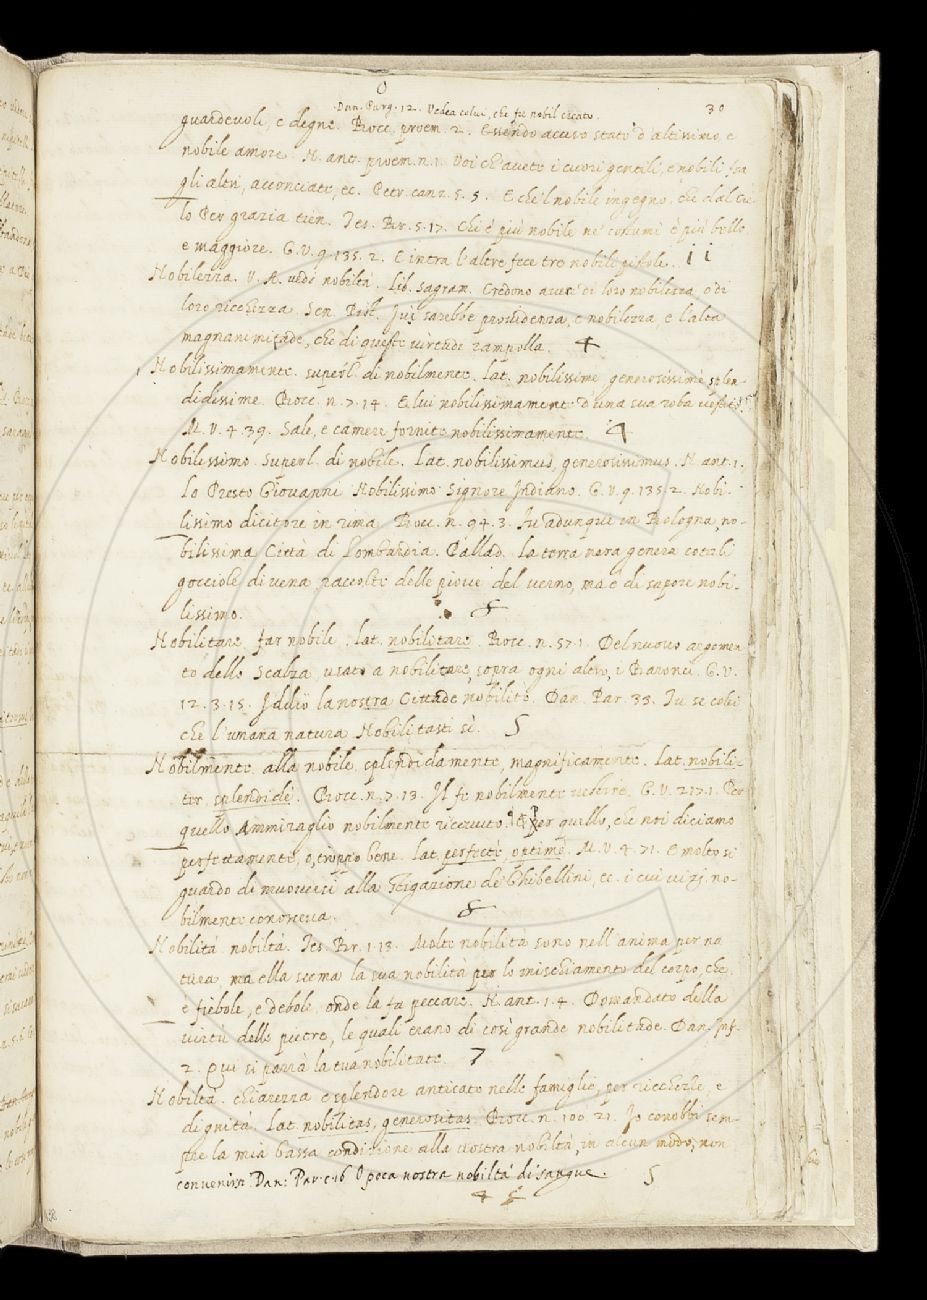 O
Dan. Purg. 12. Vedea colui, che fu nobil creato.
30
guardevoli, e degne. Bocc. proem. 2. Essendo acceso stato d'altissimo, e
nobile amore. N. ant. proem. n. 1. Voi ch'avete i cuori gentili, e nobili fra
gli altri, acconciate, ec. Petr. canz. 5. 5. E che'l nobile ingegno, che dal Cie-
lo Per grazia tien. Tes. Br. 5. 17. Chi è più nobile ne' costumi è più bello
e maggiore. G. V. 9. 135. 2. E intra l'altre fece tre nobili pistole.
Nobilezza. V. A. vedi nobiltà. Lib. Sagram. Credono aver di loro nobilezza, o di
loro ricchezza. Sen. Pist. Ivi sarebbe provvidenza, e nobilezza, e l'alta
magnanimitade, che di queste virtude rampolla. 4
Nobilissimamente. superl. di nobilmente. lat. nobilissime, generosissime, splen-
didissime. Bocc. n. 7. 14. E lui nobilissimamente d'una sua roba vestito.
M. V. 4. 39. Sale, e camere fornite nobilissimamente. 4
Nobilissimo. Superl. di nobile. Lat. nobilissimus, generosissimus. N. ant. 1.
Lo Presto Giovanni Nobilissimo Signore Indiano. G. V. 9. 135. 2. Nobi-
lissimo dicitore in rima. Bocc. n. 94. 3. Fu adunque in Bologna, no-
bilissima Città di Lombardia. Pallad. La terra nera genera cotali
gocciole di vena raccolte delle piove del verno, ma è di sapore nobi-
lissimo.
Nobilitare far nobile. lat. nobilitare. Bocc. n. 57. 1. Del nuovo argomen
to dello Scalza, usato a nobilitare, sopra ogni altro, i Baronci. G. V.
12. 3. 15. Iddio la nostra Cittade nobilitò. Dan. Par. 33. Tu se colei
che l'umana natura Nobilitasti sì. 5
Nobilmente. alla nobile. splendidamente, magnificamente. Lat. nobili-
ter. splendide. Bocc. n. 7. 13. Il fe nobilmente vestire. G. V. 217. 1. Per
quello Ammiraglio nobilmente ricevuto. per quello, che noi diciamo
perfettamente, o, troppo bene. lat. perfecte, optime. M. V. 4. 71. E molto si
guardò di muoversi alla stigazione de' Ghibellini, ec. i cui vizj no-
bilmente conosceva.
Nobilità nobiltà. Tes. Br. 1. 13. Molte nobilità sono nell'anima per na
tura, ma ella scema la sua nobilità per lo mischiamento del corpo, che
è fiebole, e debole, onde la fa peccare. N. ant. 1. 4. Domandato della
virtù delle pietre, le quali erano di così grande nobilitade. Dan. Inf.
2. Qui si parrà la tua nobilitate. 7
Nobiltà. chiarezza e splendore anticato nelle famiglie, per ricchezze, e
dignità. Lat. nobilitas, generositas. Bocc. n. 100. 21. Io conobbi sem-
pre la mia bassa condizione alla vostra nobiltà, in alcun modo, non
convenirsi. Dan: Par. c. 16 O poca nostra nobiltà di sangue. 5
4